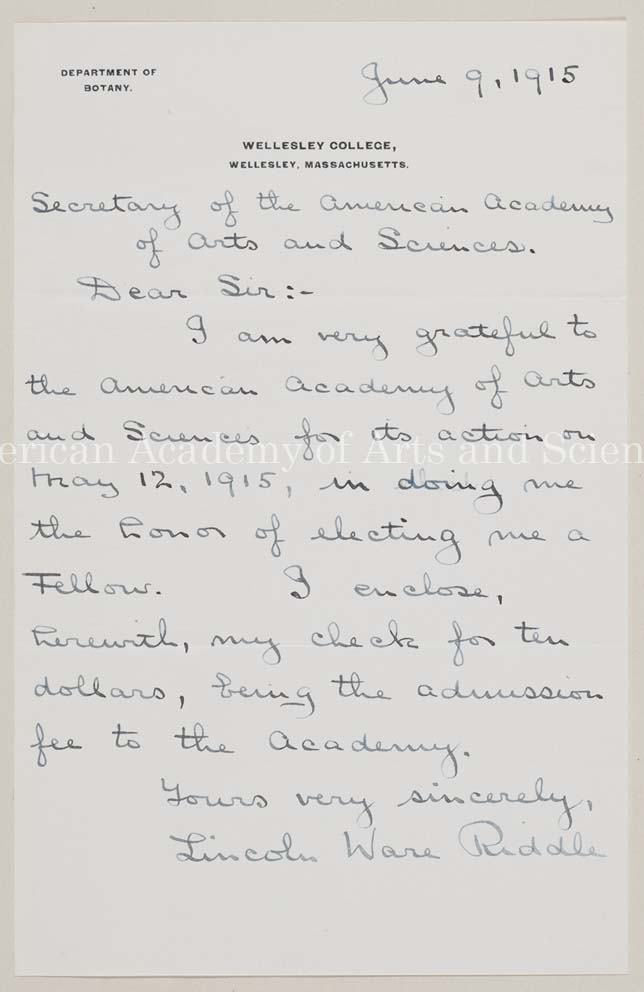 DEPARTMENT OF
BOTANY.
June 9, 1915
WELLESLEY COLLEGE,
WELLESLEY, MASSACHUSETTS.
Secretary of the American Academy
of Arts and Sciences.
Dear Sir:-
I am very grateful to
the American Academy of Arts
and Sciences for its action on
erican Academy of Arts and Scien
May 12, 1915, in doing me
the honor of electing me a
Fellow. I enclose,
herewith, my check for ten
dollars, being the admission
fee to the Academy.
Yours very sincerely,
Lincoln Ware Riddle